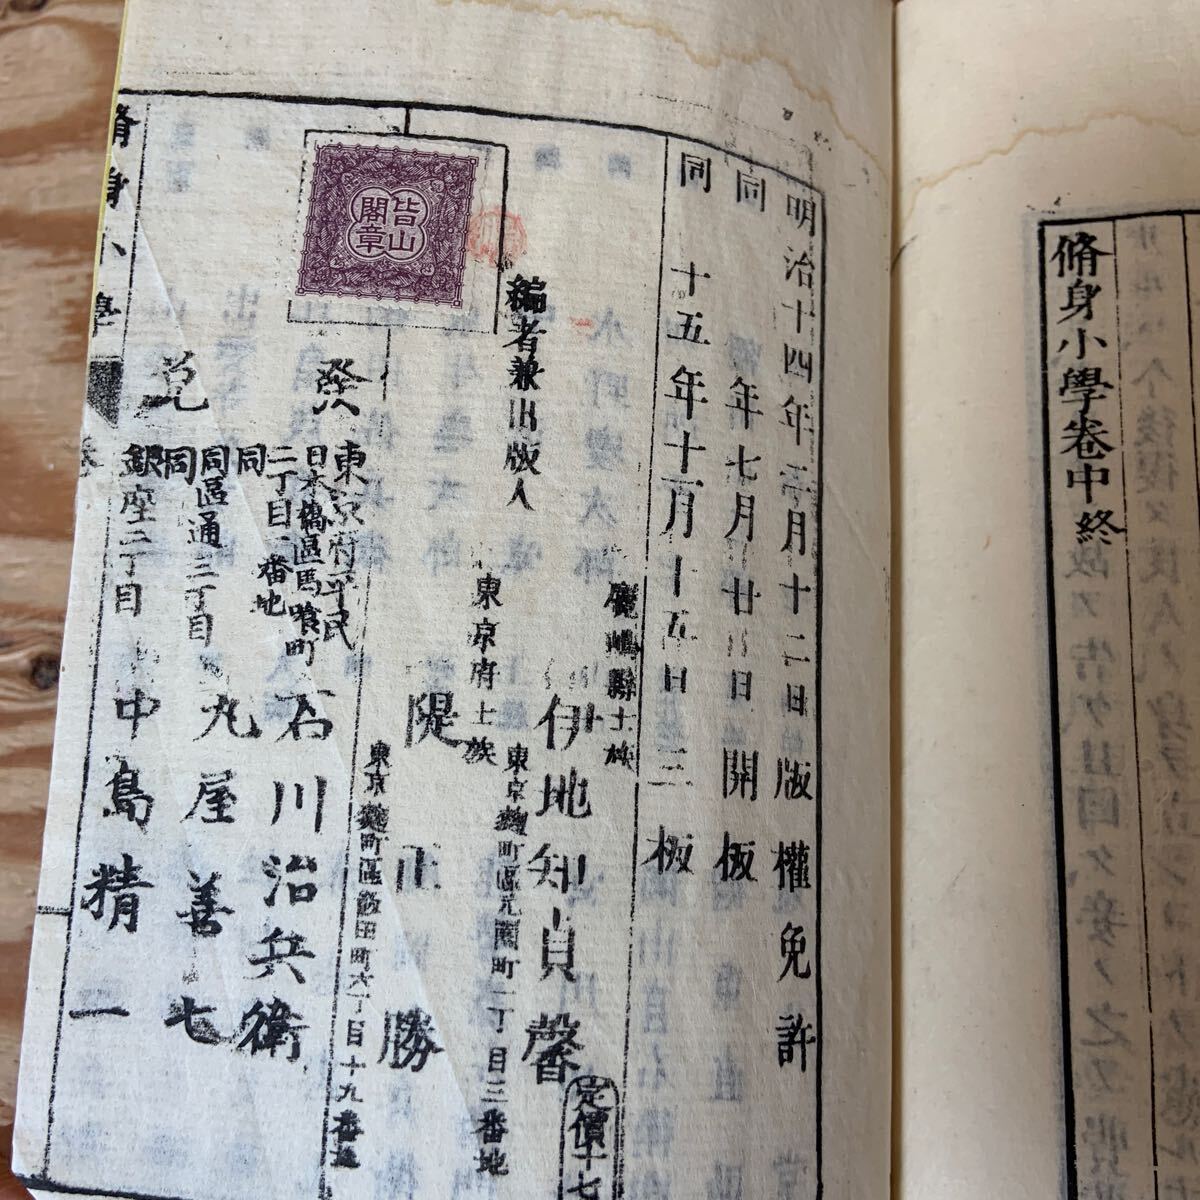 脩身小學卷中終
明治十四年 月十二日版權免許
同 年七月廿 日開板
同 十五年十一月十五日三板
編者兼出版人
鹿嶋縣士族
伊地知貞馨
東京麹町區元園町二丁目三番地
定價十七
東京府士族
隄正勝
東京麹町區飯田町六丁目十九番地
皆山閣章
發
兌
東京府平民
日本橋區馬喰町
二丁目一番地
石川治兵衛
同
同區通三丁目
丸屋善七
同
銀座二丁目
中島精一
脩身小學